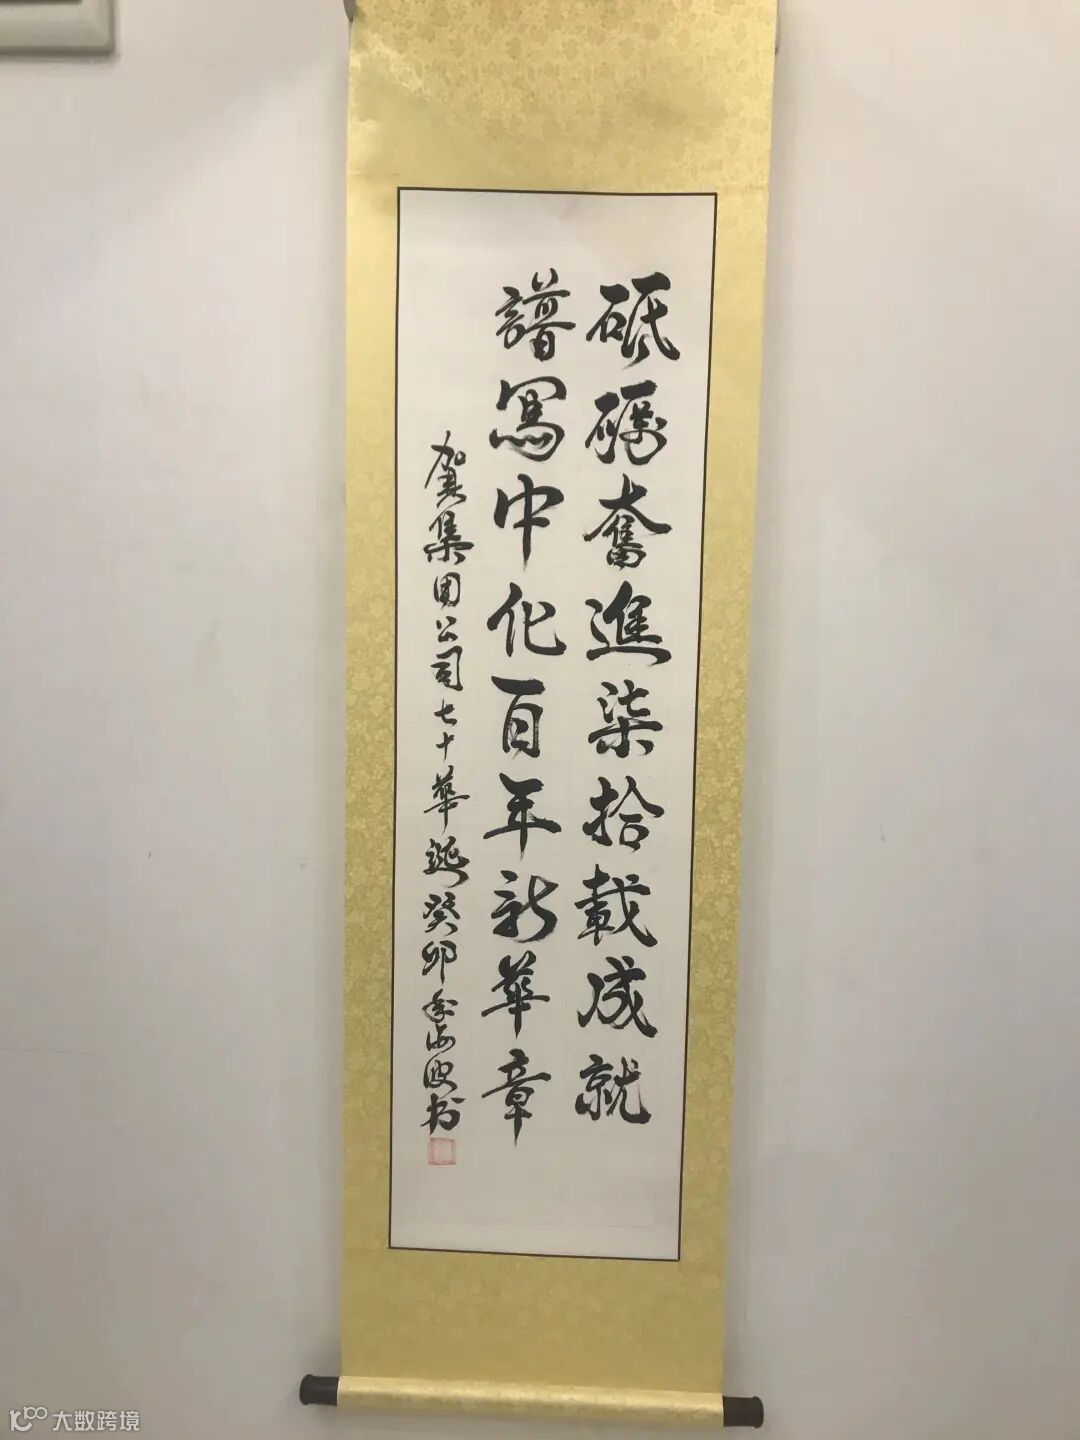 砥礪奮進柒拾載成就
譜寫中化百年新華章
賀集团公司七十華誕癸卯年海波书
大数跨境